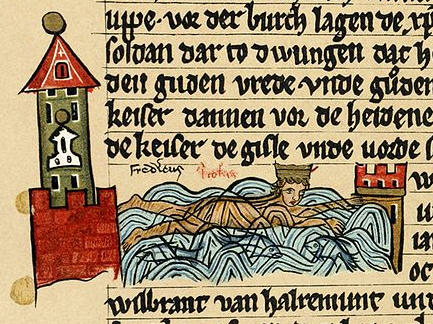 uppe· vor der burch lagen de xp̄i
soldan dar to dwungen dat he
den guden vrede· vnde guden
keiser dannen vor de heidene
de keiser de gisle vnde uorde
fredericus
w
ui
iar
oc
wilbrant van halremunt unt